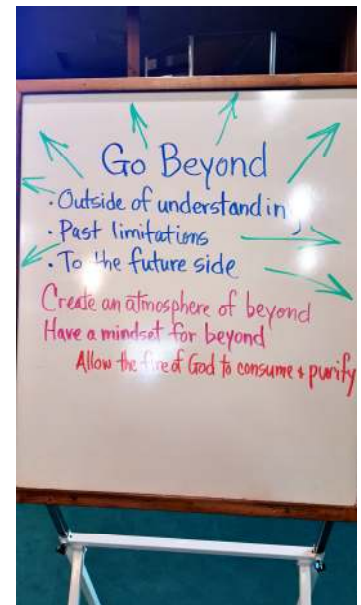 Go Beyond
· Outside of understanding
· Past limitations
· To the future side
Create an atmosphere of beyond
Have a mindset for beyond
Allow the fire of God to consume + purify